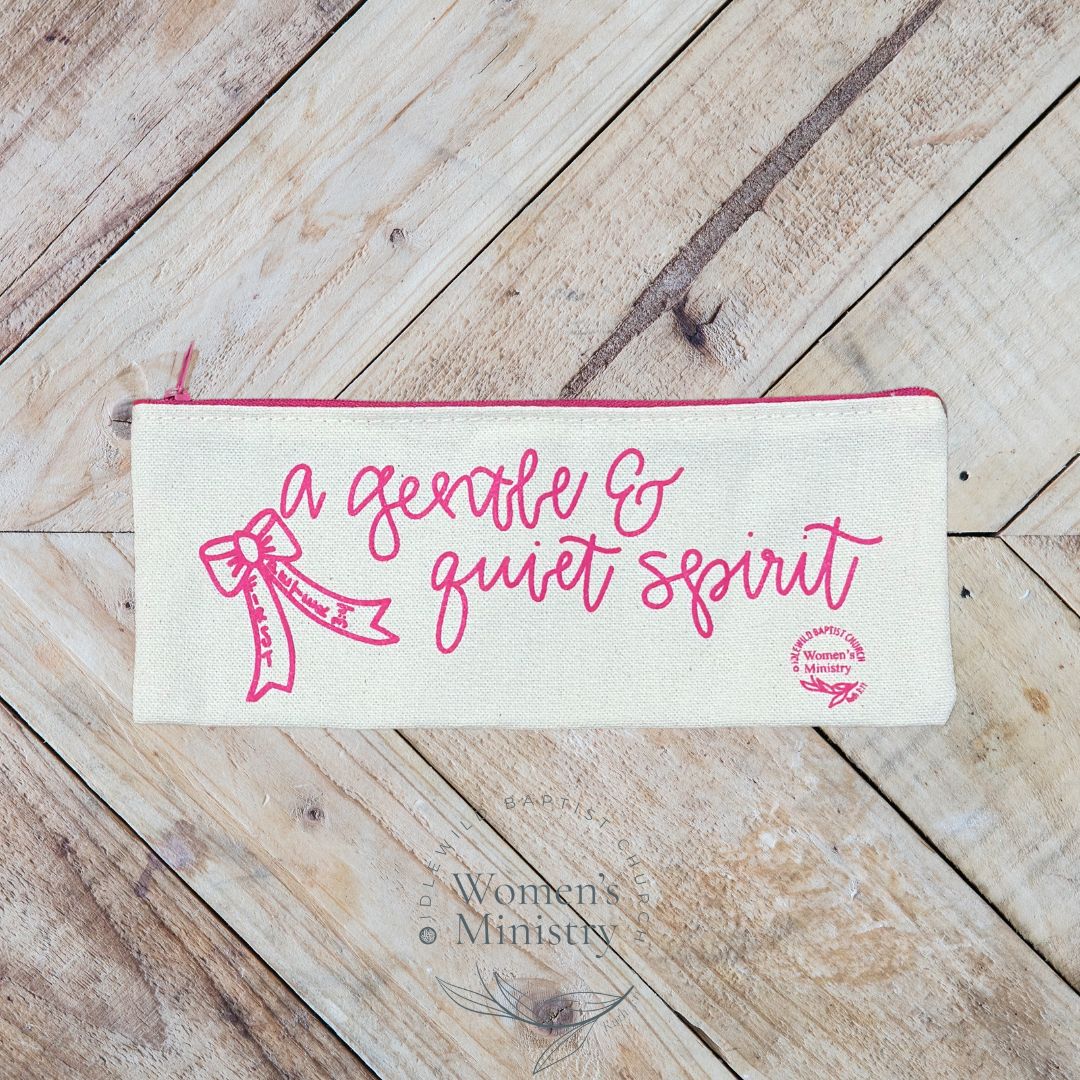 a gentle &
quiet spirit
IDLEWILD BAPTIST CHURCH
Women's
Ministry
IDLEWILD BAPTIST CHURCH
Women's
Ministry